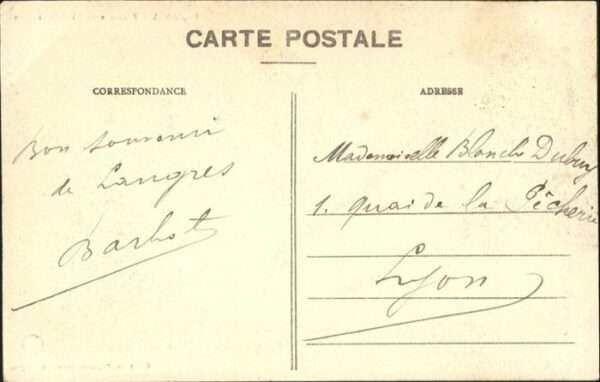 CARTE POSTALE
CORRESPONDANCE
ADRESSE
Bon souvenir
de Langres
Barbot
Mademoiselle Blanche Dubuy
1. quai de la Pêcherie
Lyon